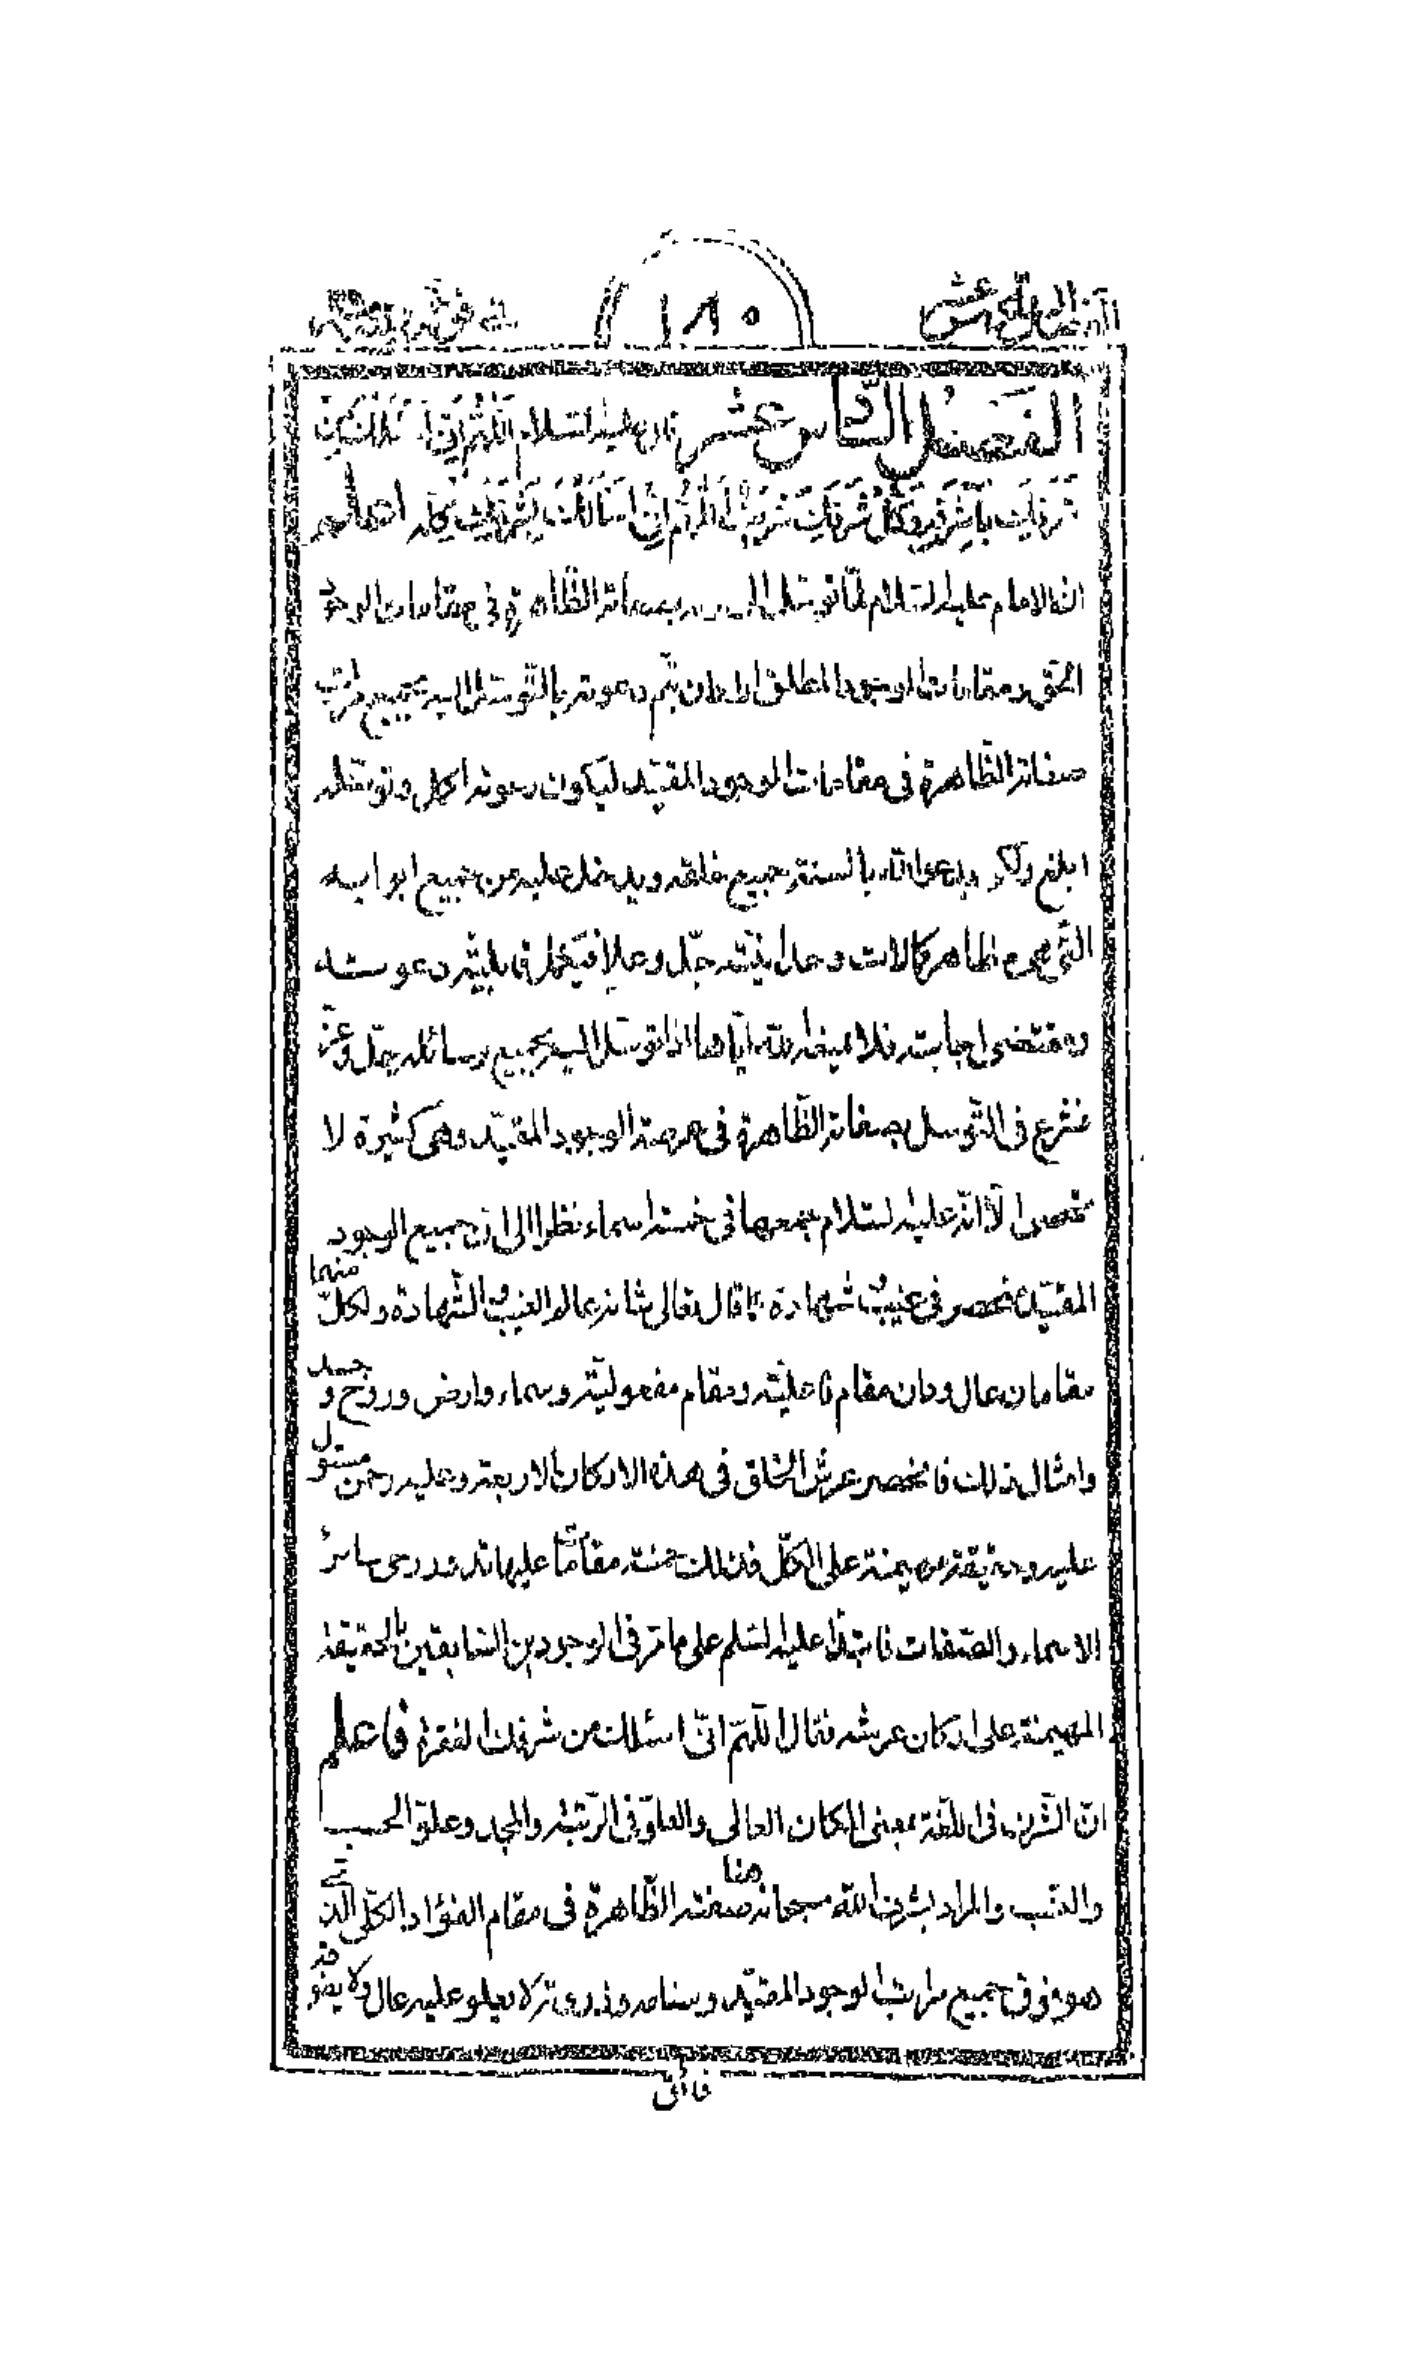 ١٨٥
الفصل السادس عشر قال عليه السلام اللهم انى اسئلك من
شرفك باشرفه وكل شرفك شريف اللهم انى اسألك بشرفك كله اعلم
ان الامام عليه السلام لما توسل الى بصفاته الظاهرة فى مقامات الوجود
الحق ومقامات الوجود المطلق اراد ان يتم دعوته بالتوسل اليه بجميع مراتب
صفاته الظاهرة فى مقامات الوجود المقيد ليكون دعوته اكمل وتوسله
ابلغ ويدعو الله بالسنة جميع خلقه ويدخل عليه من جميع ابوابه
التى هى مظاهر كمالات وحدانيته جل وعلا دعوته
ومقتضى اجابته اياها اذا توسل اليه بجميع وسائله جل وعز
فشرع فى التوسل بصفاته الظاهرة فى عرصة الوجود المقيد وهى كثيرة لا
تحصى الا انه عليه السلام جمعها فى خمسة اسماء نظرا الى ان جميع الوجود
المقيد منحصر فى غيب وشهادة كما قال تعالى شانه عالم الغيب والشهادة ولكل منهما
مقامان عال ودان مقام فاعلية ومقام مفعولية وسماء وارض وروح وجسد
وامثال ذلك فانحصر عرش الخلق فى هذه الاركان الاربعة وعليه رحمن مستول
عليه وحقيقة مهيمنة على الكل فتلك خمسة مقامات عليها تدور رحى سائر
الاسماء والصفات فابتدأ عليه السلم على ما مر فى الوجودين السابقين بالحقيقة
المهيمنة على اركان عرشه فقال اللهم انى اسئلك من شرفك الفقرة فاعلم
ان الشرف فى اللغة بمعنى المكان العالى والعلو فى الرتبة والمجد وعلو الحسب
والنسب والمراد بشرف الله سبحانه هنا صفته الظاهرة فى مقام الفؤاد الكلى الذى
هو فوق جميع مراتب الوجود المقيد وسنامه وذروته لا يعلو عليه عال ولا يفوقه
فائق